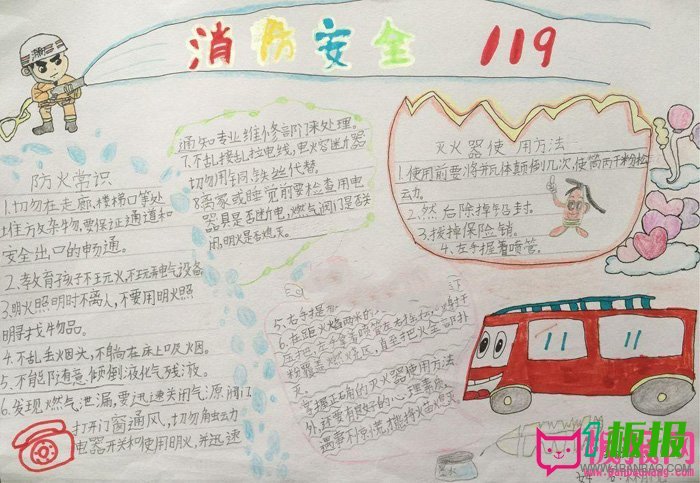 消防安全 119
防火常识
1.切勿在走廊、楼梯口等处
堆方放杂物,要保证通道和
安全出口的畅通。
2.教育孩子不玩火,不玩弄电气设备
3.明火照明时不离人,不要用明火照
明寻找物品。
4.不乱丢烟头,不躺在床上吸烟。
5.不能随意倾倒液化气残液。
6.发现燃气泄漏,要迅速关闭气源阀门
打开门窗通风,切勿触动
电器开关和使用明火,并迅速
通知专业维修部门来处理。
7.不乱接乱拉电线,电火容断器
切勿用铜、铁丝代替。
8.离家或睡觉前要检查用电
器具是否断电,燃气阀门是否关
闭,明火是否熄灭。
灭火器使用方法
1.使用前要将瓶体颠倒几次,使筒内干粉松
动。
2.然后除掉铅封。
3.拔掉保险销。
4.左手握着喷管。
5.右手提
6.在距火焰两米的
灭。
掌握正确的灭火器使用方法
外,还要有好的心理素质,
遇事
墨水
板报网
WWW.1BANBAO.COM